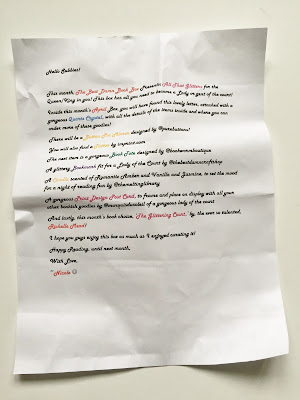 Hello Babbies!
This month, The Best Damn Book Box Presents: All That Glitters for the
Queen/King in you! This box has all you need to become a Lady in part of the court!
Inside this month's April Box, you will have found this lovely letter, attached with a
gorgeous Quartz Crystal, with all the details of the items inside and where you can
order more of these goodies!
There will be a designed by
You will also find a by
The next item is a gorgeous Book Tote designed by
A glittery Bookmark fit for a Lady of the Court by
A Candle scented of Romantic Amber and Vanilla and Jasmine, to set the mood
for a night of reading fun by
A gorgeous Print Design Post Card, to frame and place on display with all your
other bookish goodies by of a gorgeous lady of the court
And lastly, this month's book choice, 'The Glittering Court,' by the ever so talented,
Richelle Mead!
I hope you guys enjoy this box as much as I enjoyed curating it!
Happy Reading, until next month,
With Love,
~ Nicole ☺